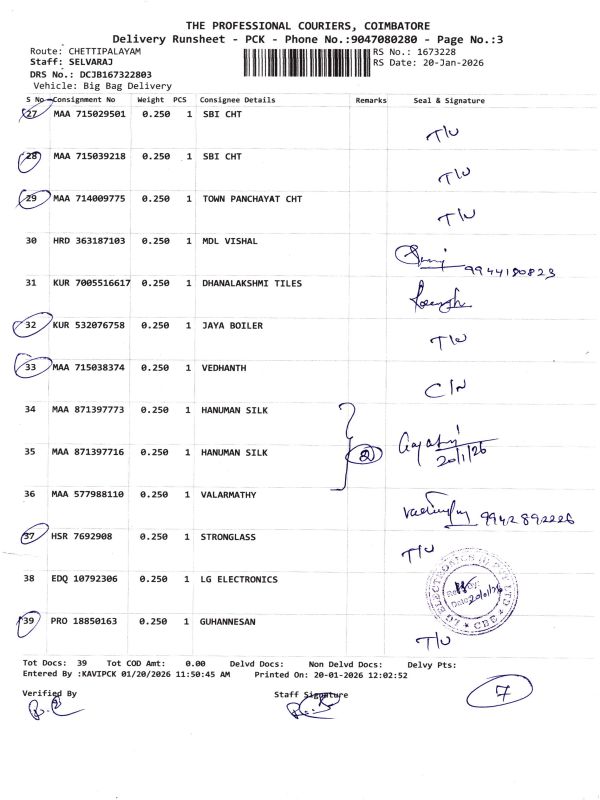 THE PROFESSIONAL COURIERS, COIMBATORE
Delivery Runsheet - PCK - Phone No.:9047080280 - Page No.:3
Route: CHETTIPALAYAM RS No.: 1673228
Staff: SELVARAJ RS Date: 20-Jan-2026
DRS No.: DCJB167322803
Vehicle: Big Bag Delivery
S No Consignment No Weight PCS Consignee Details Remarks Seal & Signature
27 MAA 715029501 0.250 1 SBI CHT
T/U
28 MAA 715039218 0.250 1 SBI CHT
T/U
29 MAA 714009775 0.250 1 TOWN PANCHAYAT CHT
T/U
30 HRD 363187103 0.250 1 MDL VISHAL
9944180823
31 KUR 7005516617 0.250 1 DHANALAKSHMI TILES
32 KUR 532076758 0.250 1 JAYA BOILER
T/U
33 MAA 715038374 0.250 1 VEDHANTH
C/N
34 MAA 871397773 0.250 1 HANUMAN SILK
35 MAA 871397716 0.250 1 HANUMAN SILK
2
20/1/26
36 MAA 577988110 0.250 1 VALARMATHY
9942892226
37 HSR 7692908 0.250 1 STRONGLASS
T/U
38 EDQ 10792306 1 LG ELECTRONICS
39 PRO 18850163 0.250 1 GUHANNESAN
T/U
Tot Docs: 39 Tot COD Amt: 0.00 Delvd Docs: Non Delvd Docs: Delvy Pts:
Entered By :KAVIPCK 01/20/2026 11:50:45 AM Printed On: 20-01-2026 12:02:52
7
Verified By Staff Signature